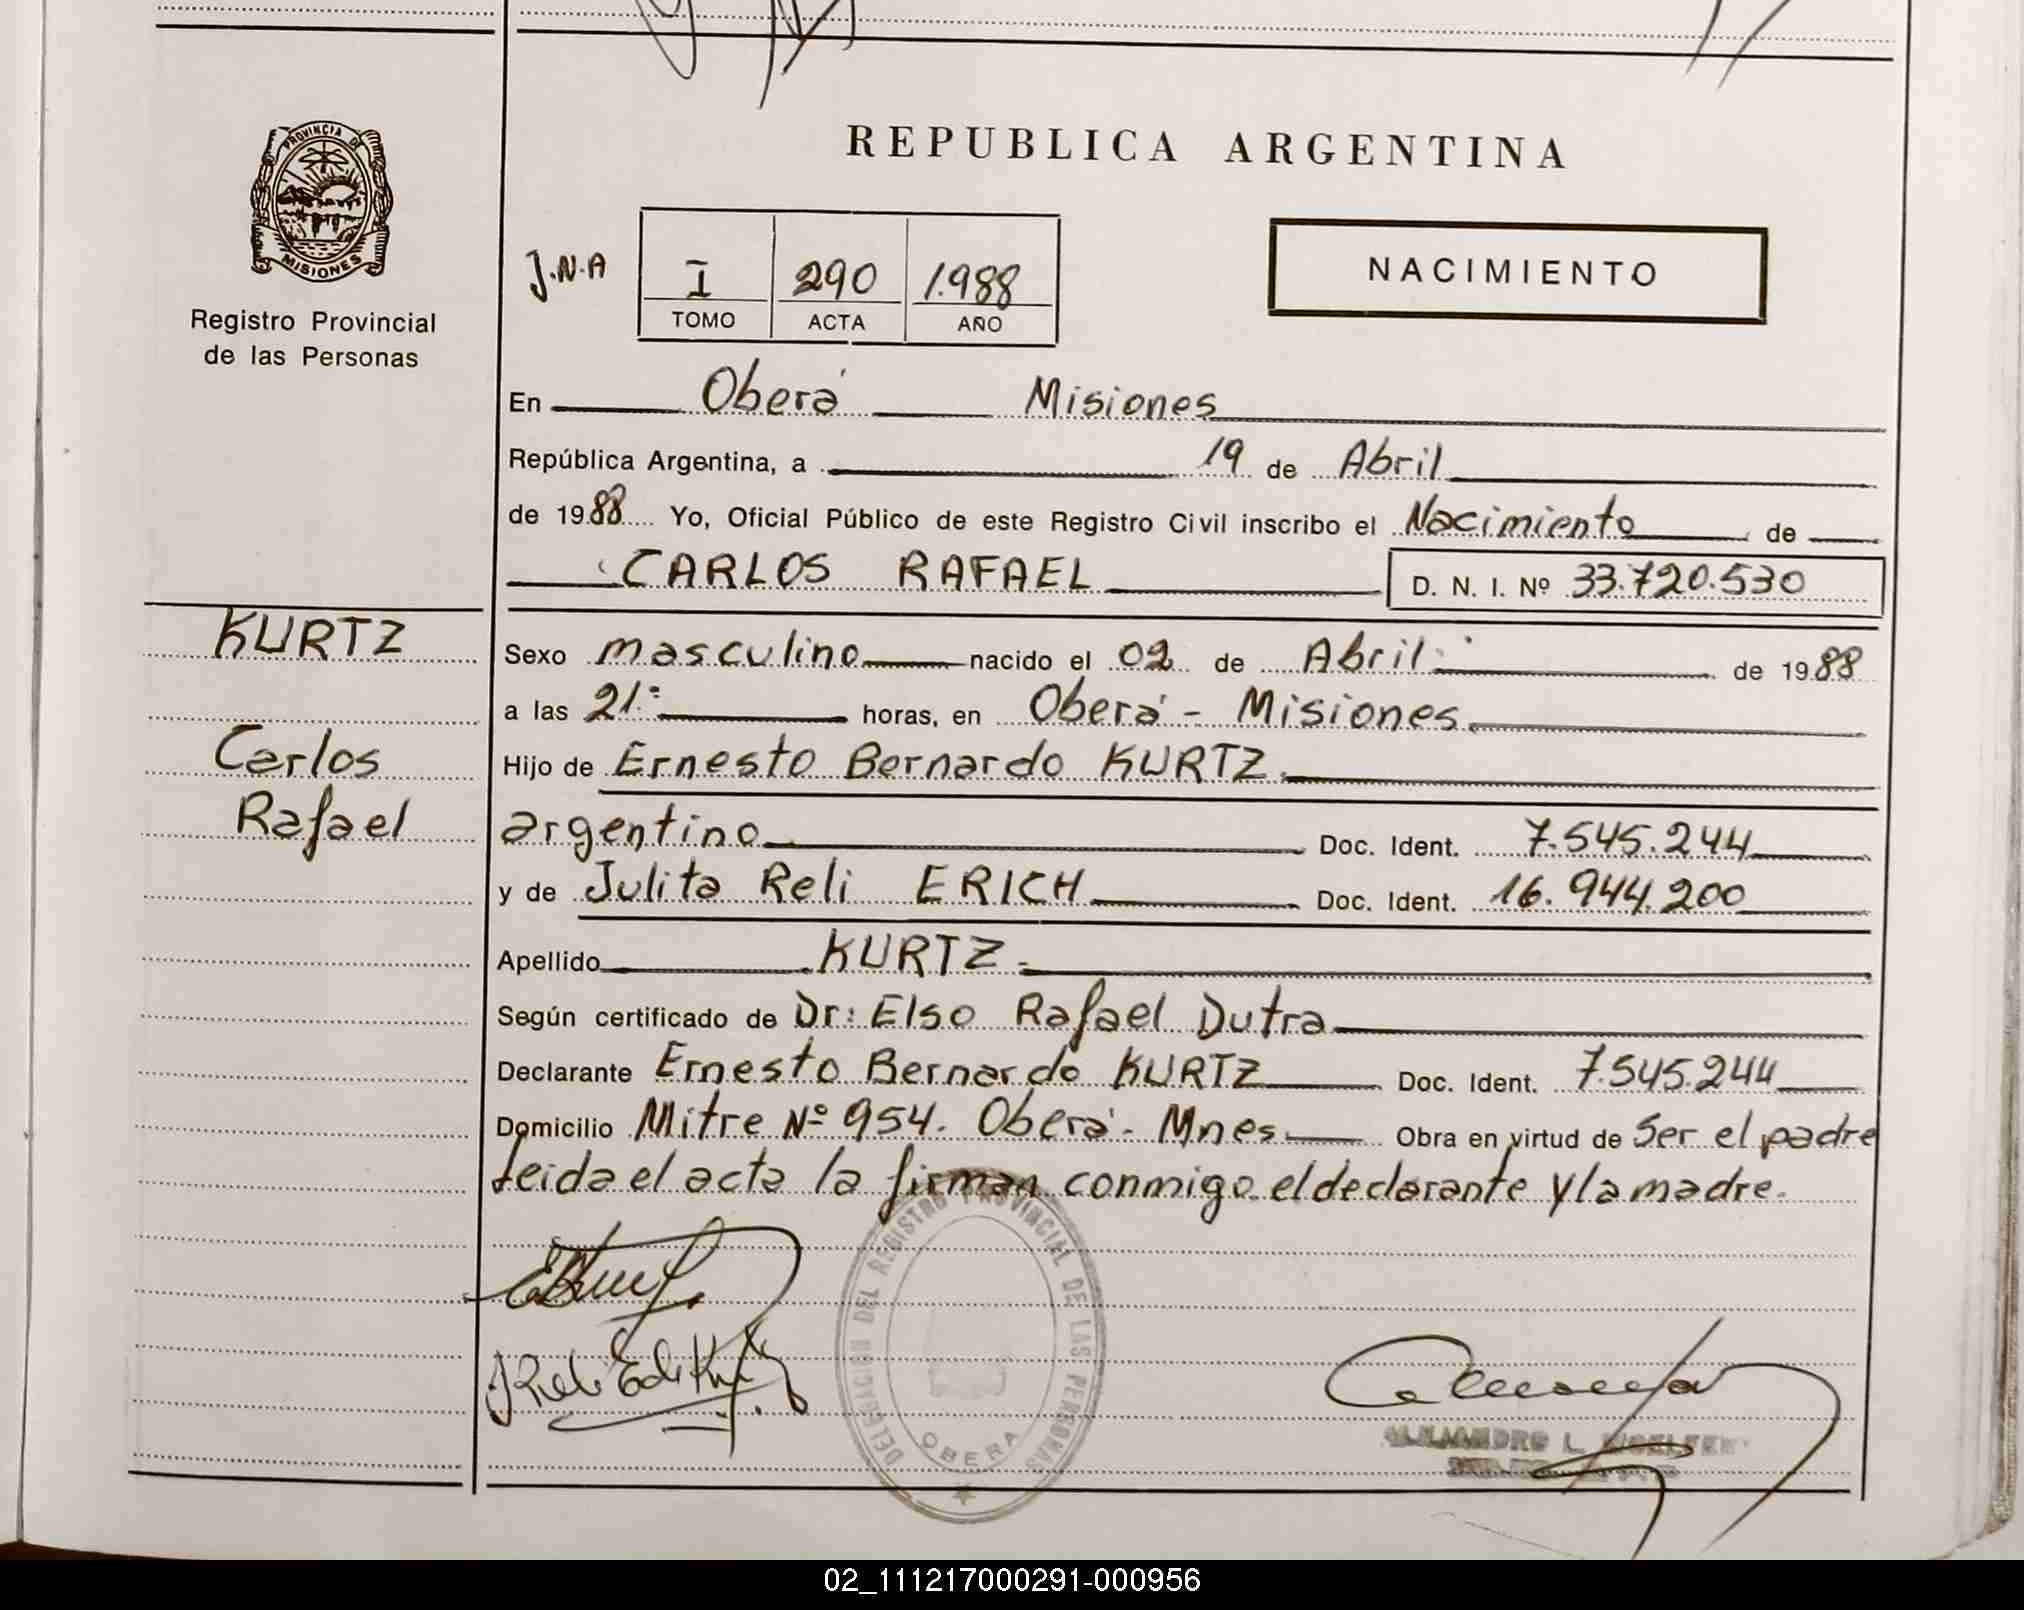 PROVINCIA DE
MISIONES
Registro Provincial
de las Personas
REPUBLICA ARGENTINA
J.N.A
I 290 1.988
TOMO ACTA AÑO
NACIMIENTO
En Oberá Misiones
República Argentina, a 19 de Abril
de 1988 Yo, Oficial Público de este Registro Civil inscribo el Nacimiento de
CARLOS RAFAEL D. N. I. Nº 33.720.530
KURTZ
Carlos
Rafael
Sexo masculino nacido el 02 de Abril de 1988
a las 21: horas, en Oberá - Misiones
Hijo de Ernesto Bernardo KURTZ
argentino Doc. Ident. 7.545.244
y de Julita Reli ERICH Doc. Ident. 16.944.200
Apellido KURTZ
Según certificado de Dr: Elso Rafael Dutra
Declarante Ernesto Bernardo KURTZ Doc. Ident. 7.545.244
Domicilio Mitre Nº 954. Oberá - Mnes Obra en virtud de Ser el padre
Leida el acta la firman conmigo el declarante y la madre.
DELEGACION DEL REGISTRO PROVINCIAL DE LAS PERSONAS
OBERA
ALEJANDRO L.
02_111217000291-000956